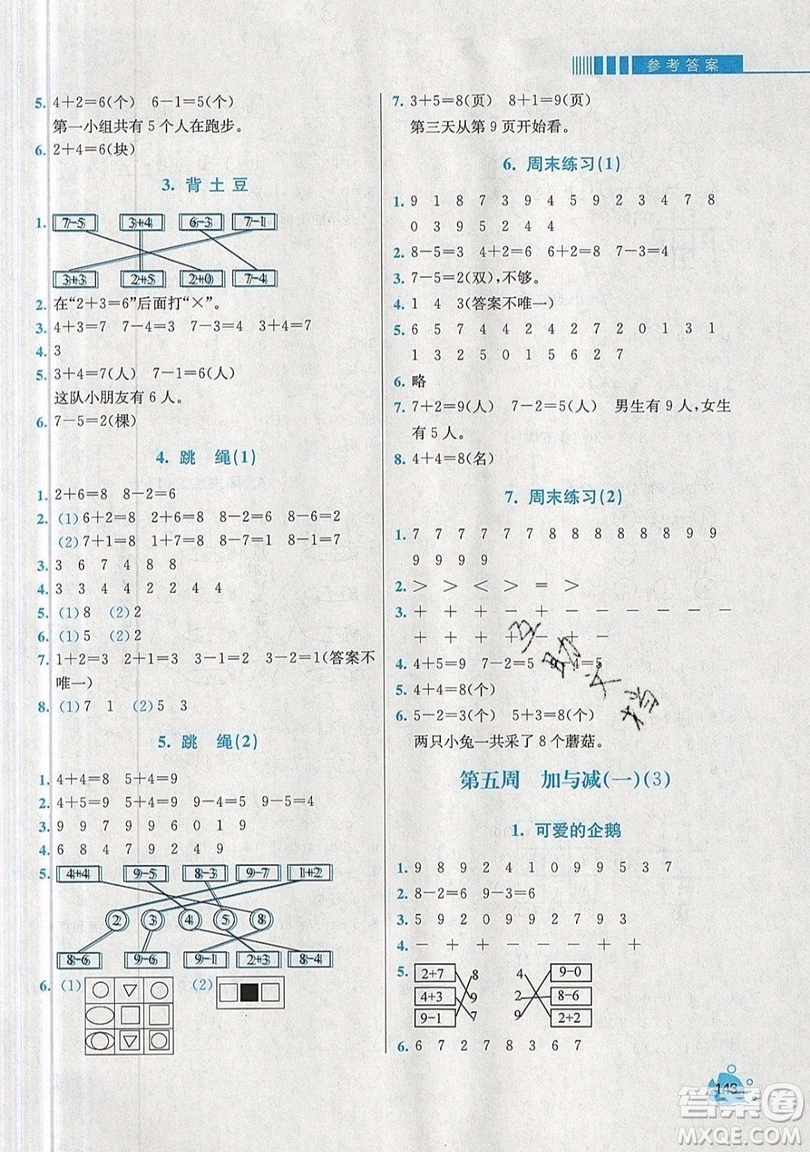 参考答案
5. 4+2=6(个) 6-1=5(个)
第一小组共有 5 个人在跑步。
6. 2+4=6(块)
3. 背土豆
1. 7-5 3+4 6-3 7-1
3+3 2+5 2+0 7-4
2. 在“2+3=6”后面打“×”。
3. 4+3=7 7-3=4 7-4=3 3+4=7
4. 3
5. 3+4=7(人) 7-1=6(人)
这队小朋友有 6 人。
6. 7-5=2(棵)
4. 跳 绳(1)
1. 2+6=8 8-2=6
2. (1)6+2=8 2+6=8 8-2=6 8-6=2
(2)7+1=8 1+7=8 8-1=7 8-7=1
3. 3 6 7 4 8 8
4. 3 3 4 4 2 2 2 4 4
5. (1)8 (2)2
6. (1)6 (2)2
7. 1+2=3 1+2=3 3-1=2 3-2=1(答案不
唯一)
8. (1)7 1 (2)5 3
5. 跳 绳(2)
1. 4+4=8 4+5=9
2. 4+5=9 5+4=9 9-4=5 9-5=4
3. 9 9 7 9 9 6 0 1 9
4. 6 8 4 7 9 2 4 9
5. 4+4 9-5 8-3 9-7 1+2
2 3 4 5 8
8-6 9-6 9-1 2+3 8-4
6. (1) (2)
7. 3+5=8(页) 8+1=9(页)
第三天从第 9 页开始看。
6. 周末练习(1)
1. 9 1 8 7 3 9 4 5 9 2 3 4 7 8
0 3 9 5 2 4 4
2. 8-5=3 4+2=6 7-3=4
3. 7-5=2(双),不够。
4. 1 4 3(答案不唯一)
5. 6 5 7 4 4 2 7 2 0 1 3 1
1 3 2 6 5 9 2 7 6 3 8
6. 略
7. 7+2=9(人) 7-2=5(人) 男生有 9 人,女生
有 5 人。
8. 4+4=8(名)
7. 周末练习(2)
1. 7 7 7 7 7 8 8 8 8 9 9
9 9 9 9
2. > > < > = >
3. + + - + - - - - - -
+ + + + - + - -
4. 4+5=9 7-2=5 9-4=5
5. 4+4=8(个)
6. 5-2=3(个) 5+3=8(个)
两只小兔一共采了 8 个蘑菇。
互助文档
第五周 加与减(一)(3)
1. 可爱的企鹅
1. 9 8 9 2 4 1 0 9 9 5 3 7
2. 8-2=6 9-3=6
3. 5 9 2 0 9 9 2 7 3 9
4. - + - - - + + +
5. 2+7 8 4 9-0
4+3 9 2 8-6
9-1 7 9 2+2
6. 6 2 7 7 8 3 6 7
143
答案圈
MXQE.COM